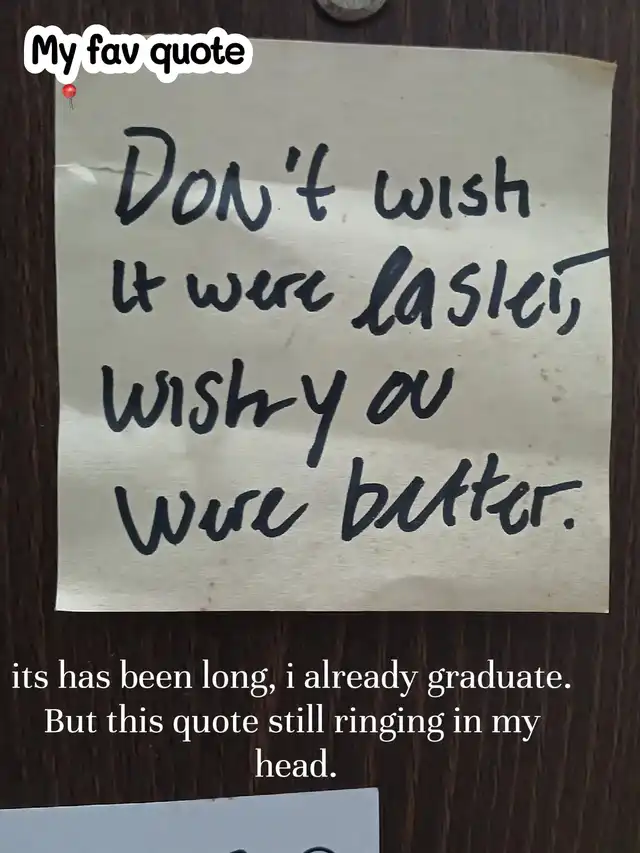 My fav quote
Don't wish
it were easier,
wish you
were better.
its has been long, i already graduate.
But this quote still ringing in my
head.